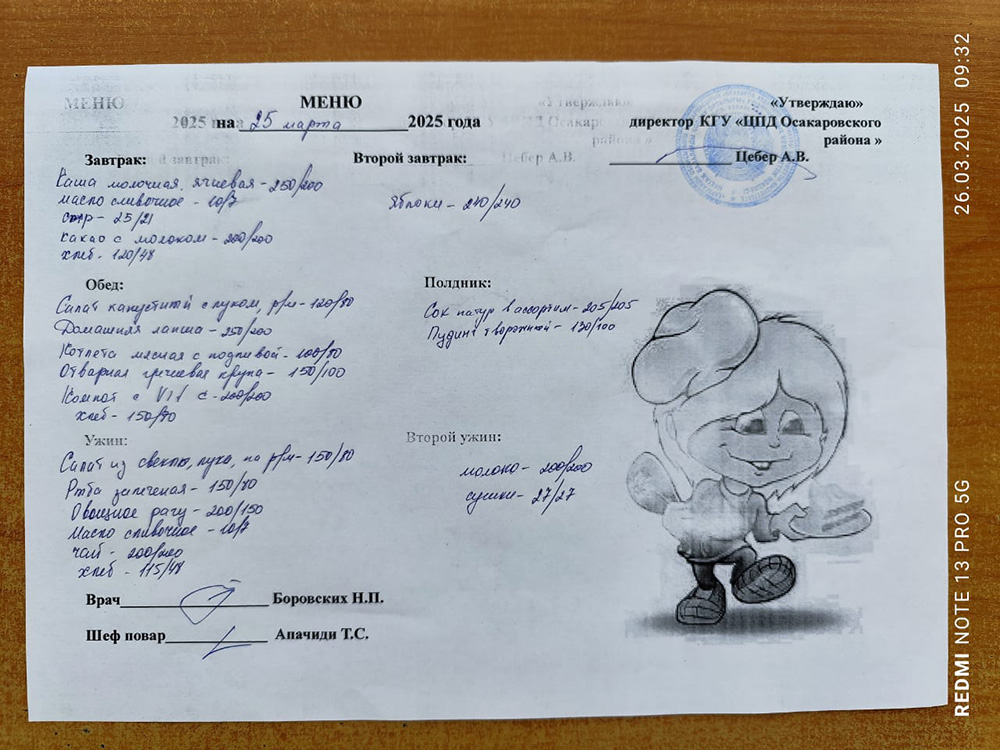 МЕНЮ
на 25 марта 2025 года
«Утверждаю»
директор КГУ «ЦПД Осакаровского
района »
Цебер А.В.
Завтрак:
Каша молочная, ячневая - 250/200
масло сливочное - 10/7
сыр - 25/21
какао с молоком - 200/200
хлеб - 120/48
Второй завтрак:
Яблоки - 240/240
Обед:
Салат капустный с луком, р/м - 120/80
Домашняя лапша - 250/200
Котлета мясная с подливой - 100/80
Отварная гречневая крупа - 150/100
Компот с Vit C - 200/200
хлеб - 150/70
Полдник:
Сок натур в ассортим - 205/205
Пудинг творожный - 130/100
Ужин:
Салат из свеклы, лука, на р/м - 150/80
Рыба запеченая - 150/80
Овощное рагу - 200/150
Масло сливочное - 10/7
чай - 200/200
хлеб - 115/48
Второй ужин:
молоко - 200/200
сушки - 27/27
Врач Боровских Н.П.
Шеф повар Апачиди Т.С.
REDMI NOTE 13 PRO 5G
26.03.2025 09:32